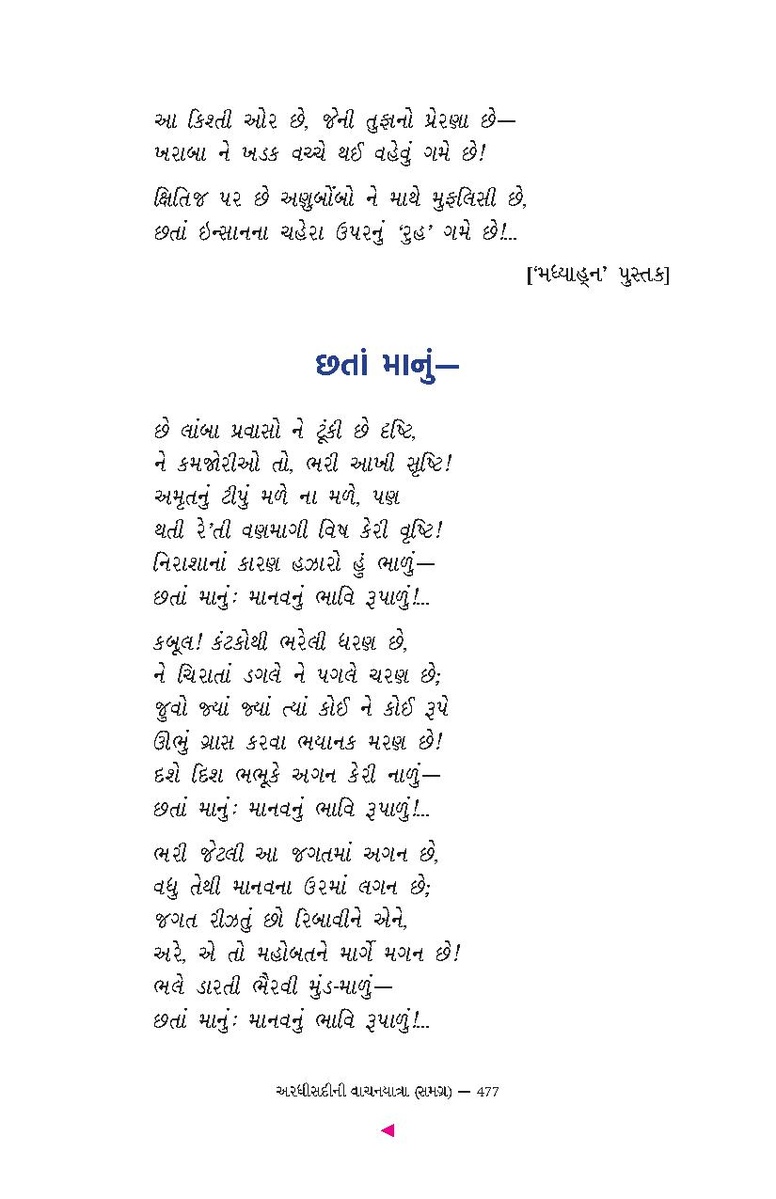 આ કિશ્તી ઓર છે, જેની તુફાનો પ્રેરણા છે—
ખરાબા ને ખડક વચ્ચે થઈ વહેવું ગમે છે!
ક્ષિતિજ પર છે અણુબોંબો ને માથે મુફલિસી છે,
છતાં ઇન્સાનના ચહેરા ઉપરનું ‘રુહ’ ગમે છે!...
[‘મધ્યાહ્ન’ પુસ્તક]
છતાં માનું—
છે લાંબા પ્રવાસો ને ટૂંકી છે દૃષ્ટિ,
ને કમજોરીઓ તો, ભરી આખી સૃષ્ટિ!
અમૃતનું ટીપું મળે ના મળે, પણ
થતી રે’તી વણમાગી વિષ કેરી વૃષ્ટિ!
નિરાશાનાં કારણ હઝારો હું ભાળું—
છતાં માનું: માનવનું ભાવિ રૂપાળું!...
કબૂલ! કંટકોથી ભરેલી ધરણ છે,
ને ચિરાતાં ડગલે ને પગલે ચરણ છે;
જુવો જ્યાં જ્યાં ત્યાં કોઈ ને કોઈ રૂપે
ઊભું ગ્રાસ કરવા ભયાનક મરણ છે!
દશે દિશ ભભૂકે અગન કેરી નાળું—
છતાં માનું: માનવનું ભાવિ રૂપાળું!...
ભરી જેટલી આ જગતમાં અગન છે,
વધુ તેથી માનવના ઉરમાં લગન છે;
જગત રીઝતું છો રિબાવીને એને,
અરે, એ તો મહોબતને માર્ગે મગન છે!
ભલે ડારતી ભૈરવી મુંડ-માળું—
છતાં માનું: માનવનું ભાવિ રૂપાળું!...
અરધીસદીની વાચનયાત્રા (સમગ્ર) — 477